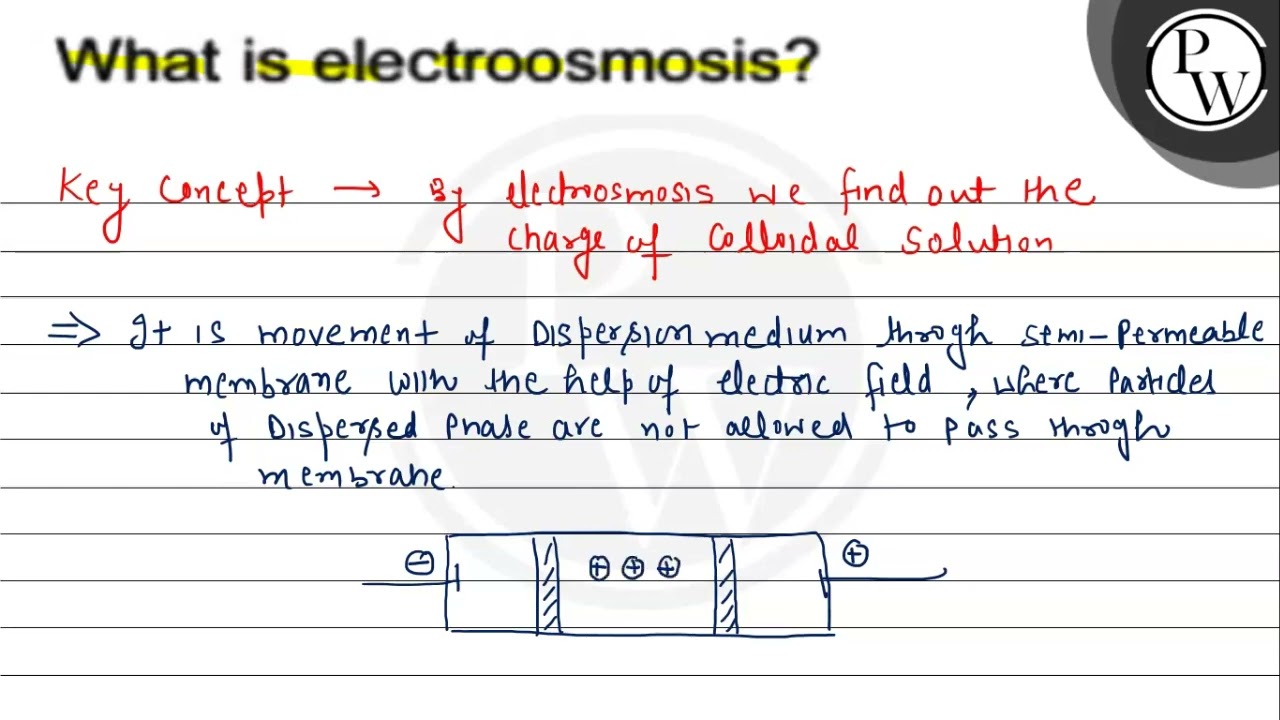 What is electroosmosis?
PW
Key Concept → By electroosmosis we find out the
charge of Colloidal Solution
⇒ It is movement of Dispersion medium throgh semi-Permeable
membrane with the help of electric field, where Particles
of Dispersed Phase are not allowed to pass throgh
membrane.
⊖ ⊕ ⊕ ⊕ ⊕